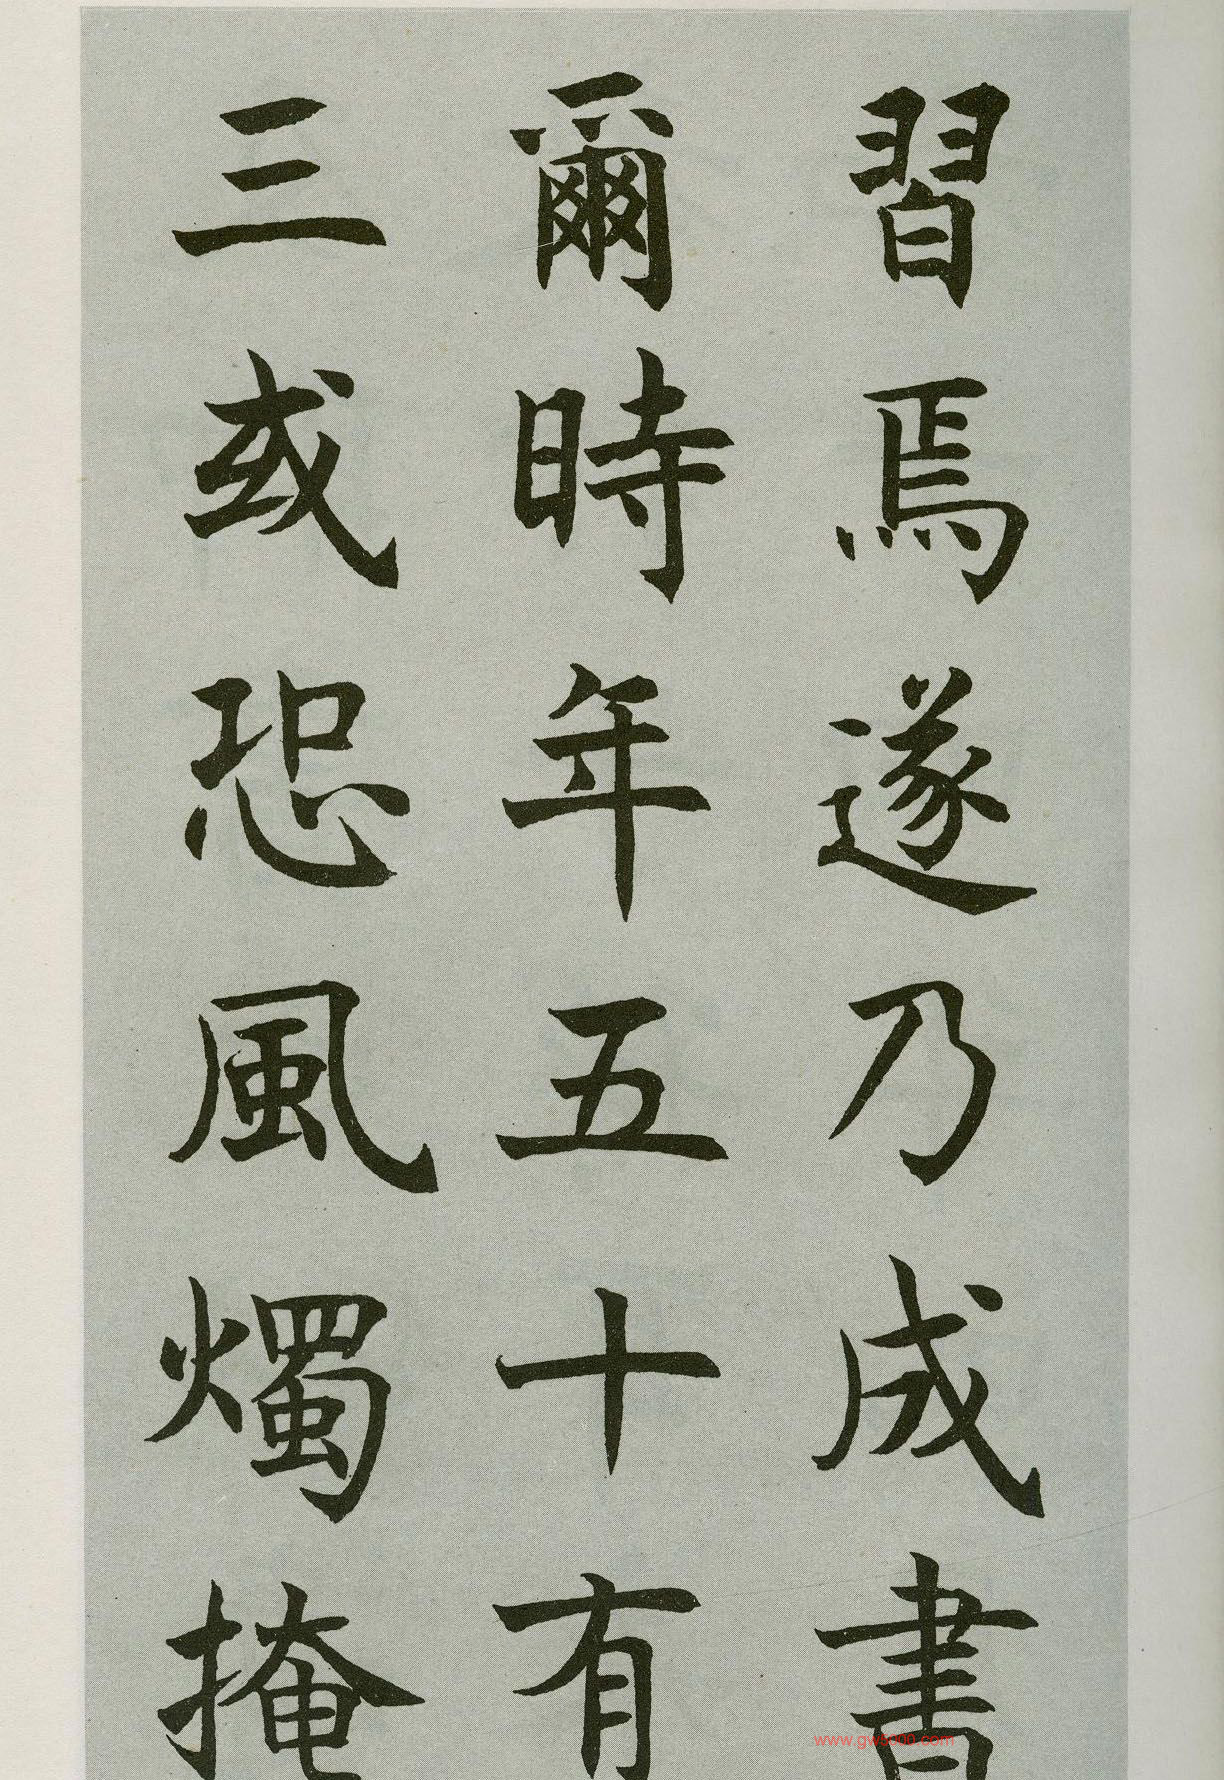 習焉遂乃成書
爾時年五十有
三或恐風燭掩
www.gw5000.com